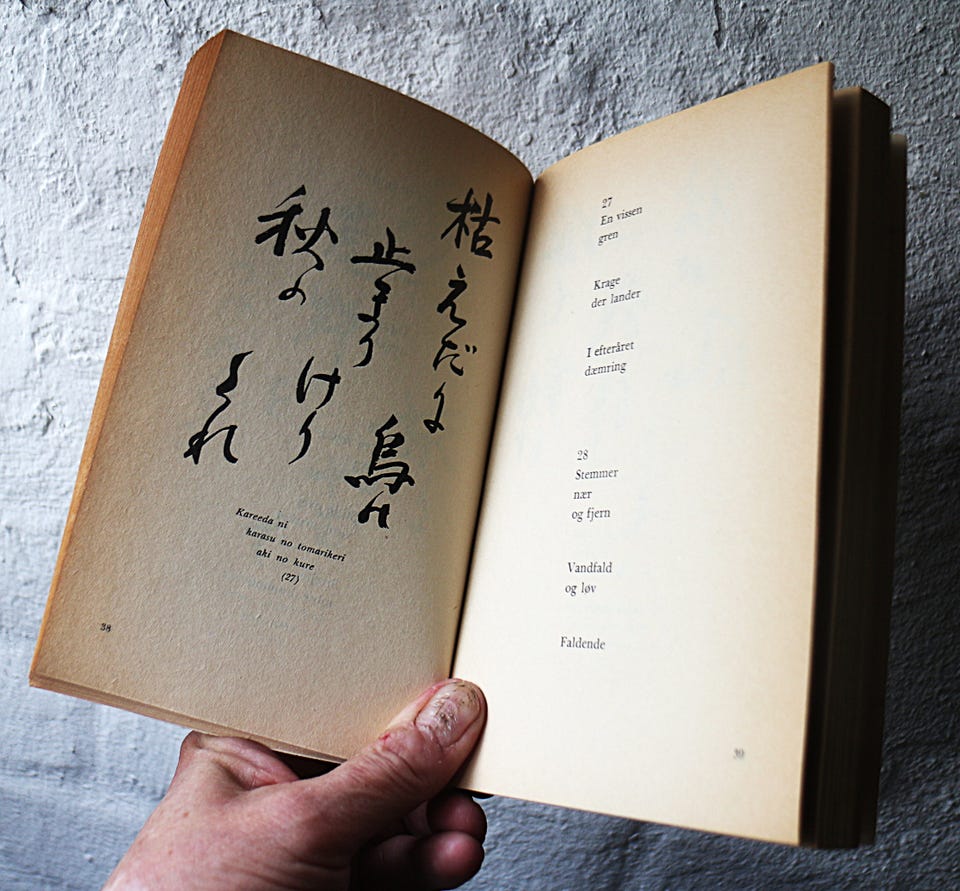 枯えだに
烏の
止まり
けり
秋の
くれ
Kareeda ni
karasu no tomarikeri
aki no kure
(27)
38
27
En vissen
gren
Krage
der lander
I efteråret
dæmring
28
Stemmer
nær
og fjern
Vandfald
og løv
Faldende
39